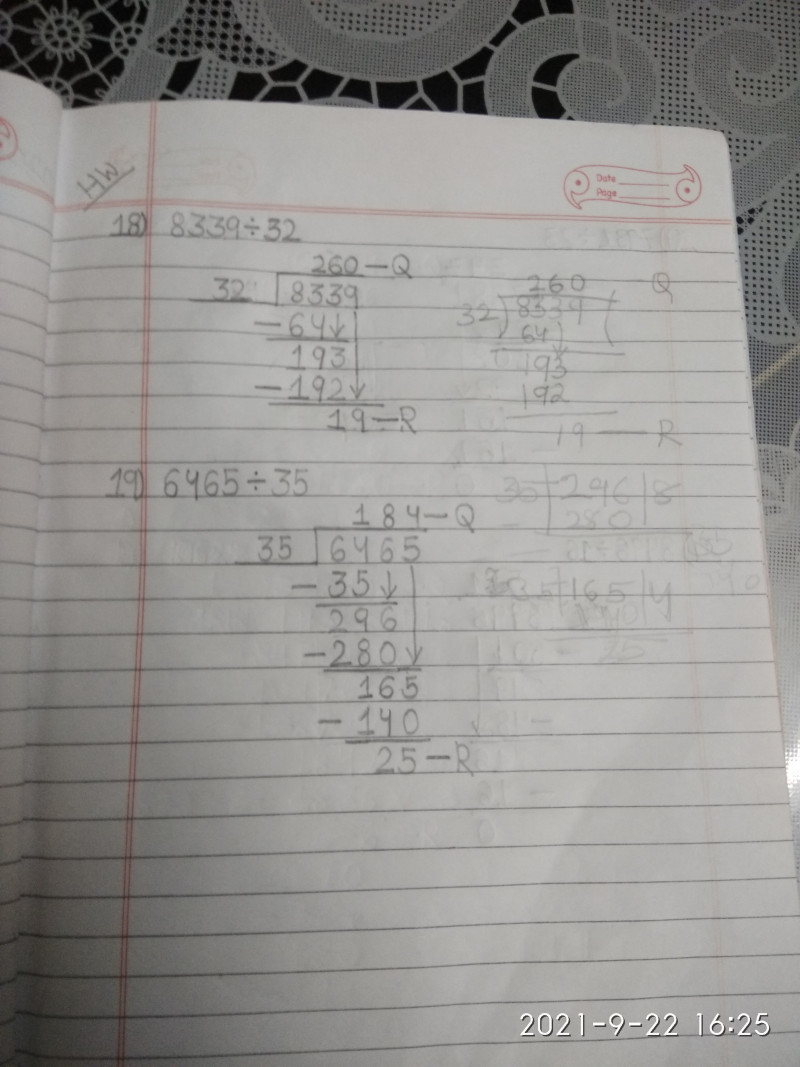 HW
Date
Page
18) 8339÷32
260—Q
32 8339
—64
193
—192
19—R
260 Q
32 8339
64
0193
192
19 — R
19) 6465÷35
184—Q
35 6465
—35
296
—280
165
—140
25—R
35 296 8
280
35 165 4
140
25
2021-9-22 16:25